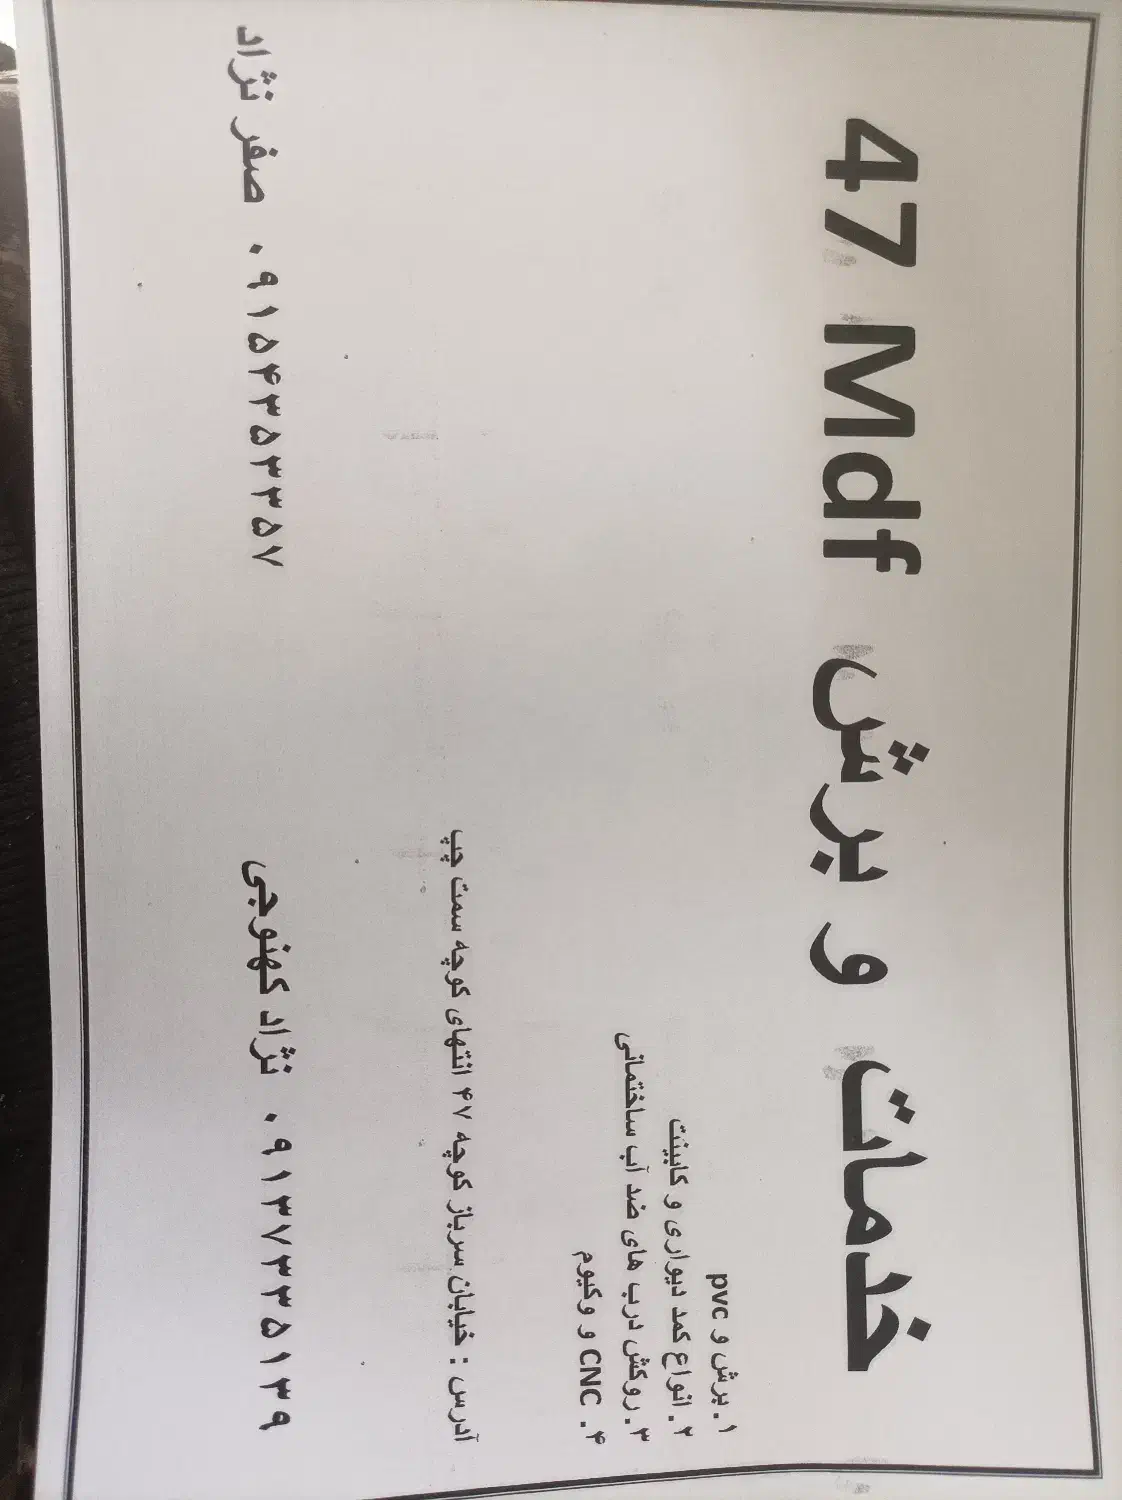 خدمات و برش 47 Mdf
۱. برش و pvc
۲. انواع کمد دیواری و کابینت
۳. روکش درب های ضد آب ساختمانی
۴. CNC و وکیوم
آدرس : خیابان سرباز کوچه ۴۷ انتهای کوچه سمت چپ
نژاد کهنوجی ۰۹۱۳۷۳۳۵۱۳۹ صفر نژاد ۰۹۱۵۴۳۵۳۳۵۷